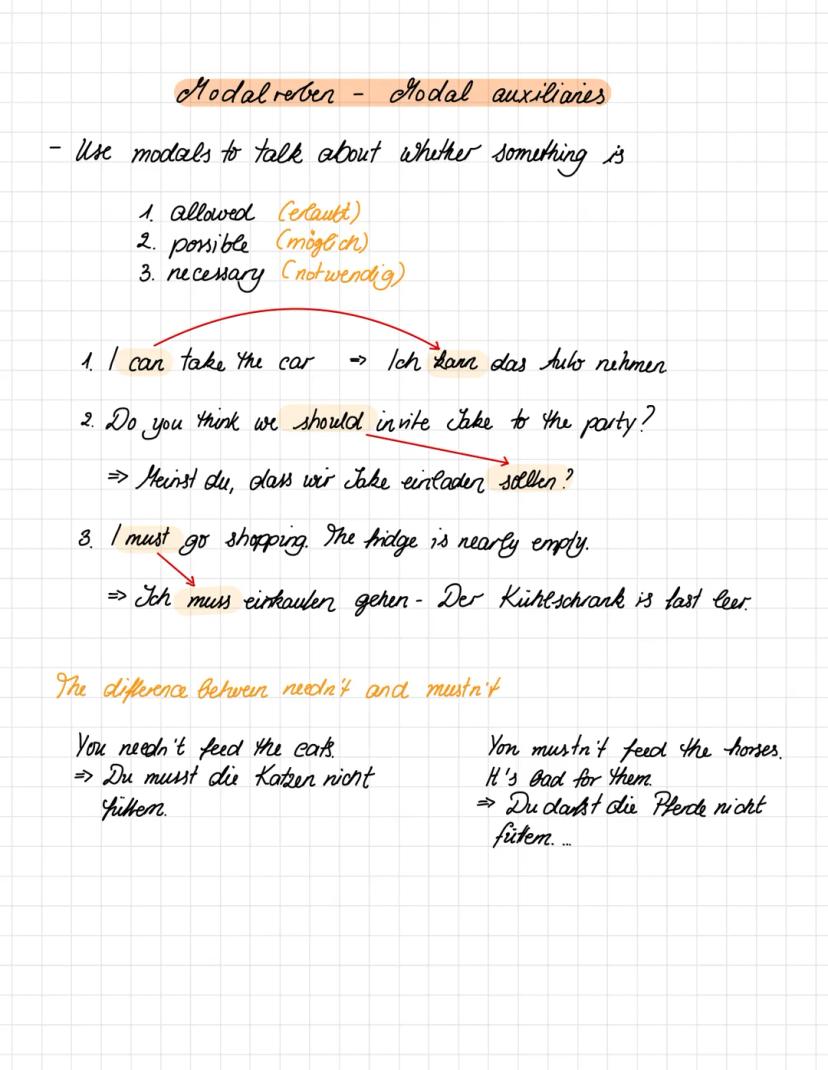 Modalverben - Modal auxiliaries
- Use modals to talk about whether something is
1. allowed (erlaubt)
2. possible (möglich)
3. necessary (notwendig)
1. I can take the car => Ich kann das Auto nehmen
2. Do you think we should invite Jake to the party?
=> Meinst du, dass wir Jake einladen sollten?
3. I must go shopping. The fridge is nearly empty.
=> Ich muss einkaufen gehen - Der Kühlschrank is fast leer.
The difference between needn't and mustn't
You needn't feed the cats.
=> Du musst die Katzen nicht
füttern.
You mustn't feed the horses.
It's bad for them.
=> Du darfst die Pferde nicht
füttern. ...